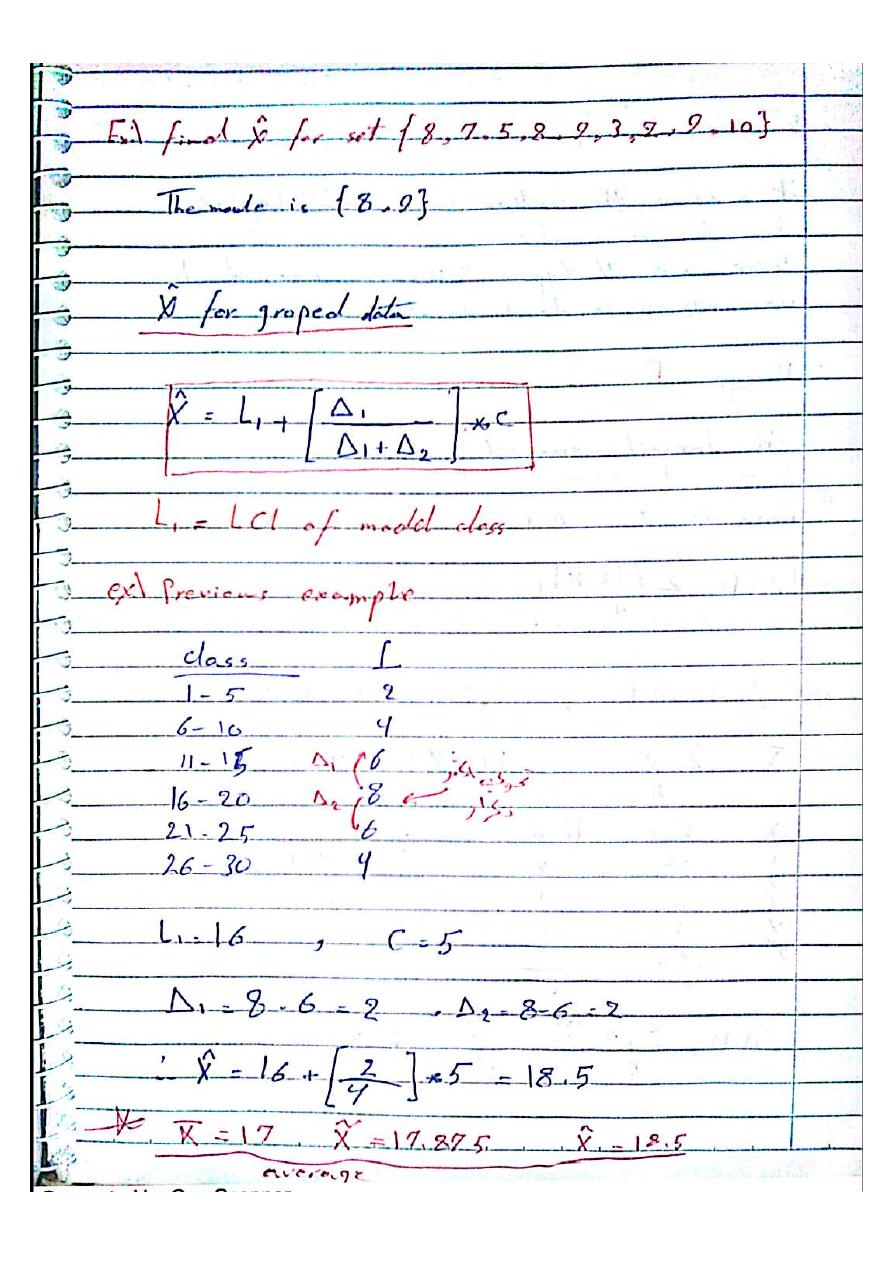 Ex) find x̂ for set { 8, 7, 5, 8, 9, 3, 2, 9, 10}
The mode is {8, 9}
x̂ for groped data
X̂ = L₁ + [Δ₁ / (Δ₁ + Δ₂)] * C
L₁ = LCL of modal class
ex) Previous example
class f
1 - 5 2
6 - 10 4
11 - 15 Δ₁ 6
16 - 20 Δ₂ 8
21 - 25 6
26 - 30 4
L₁ = 16 , C = 5
Δ₁ = 8 - 6 = 2 , Δ₂ = 8 - 6 = 2
∴ X̂ = 16 + [2/4] * 5 = 18.5
* X̄ = 17 , X̃ = 17.875 , X̂ = 18.5
average